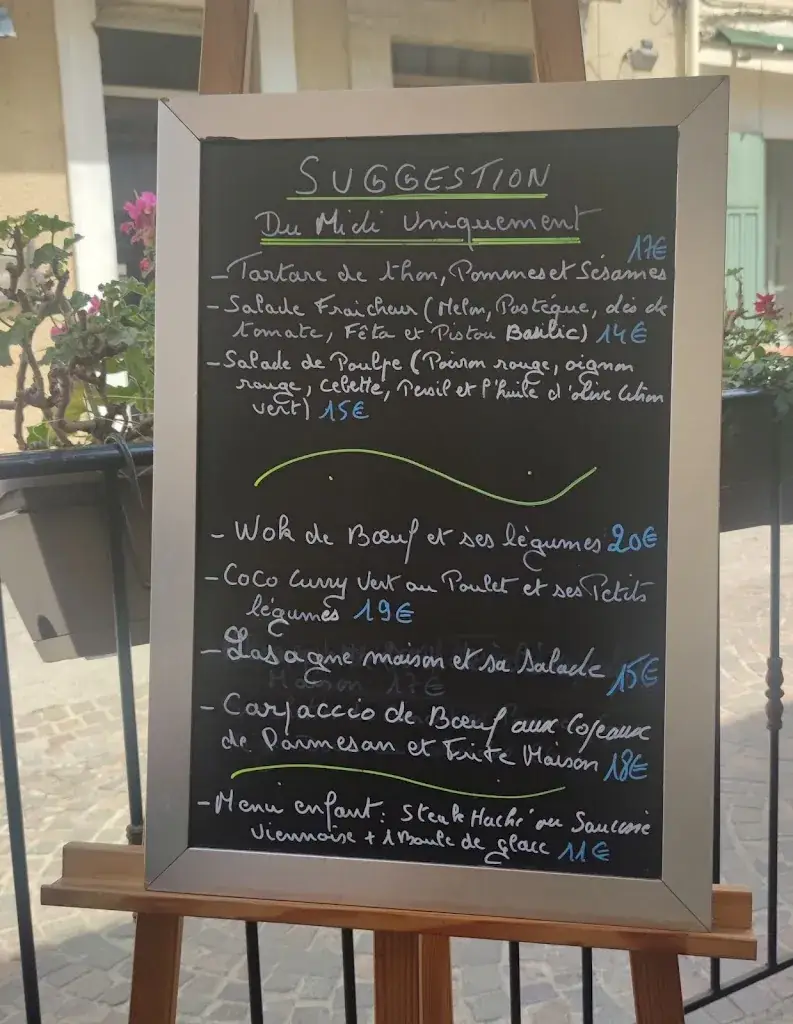 SUGGESTION
Du Midi Uniquement
17€
- Tartare de thon, Pommes et Sésames
- Salade Fraicheur (Melon, Pastéque, dés de
tomate, Féta et Pistou Basilic) 14€
- Salade de Poulpe (Poivron rouge, oignon
rouge, Cebette, Persil et l'huile d'olive Citron
vert) 15€
- Wok de Bœuf et ses légumes 20€
- Coco Curry Vert au Poulet et ses Petits
légumes 19€
- Lasagne maison et sa Salade 15€
- Carpaccio de Bœuf aux Copeaux
de Parmesan et Frite Maison 18€
- Menu enfant : Steak Haché ou Saucisse
Viennoise + 1 Boule de glace 11€